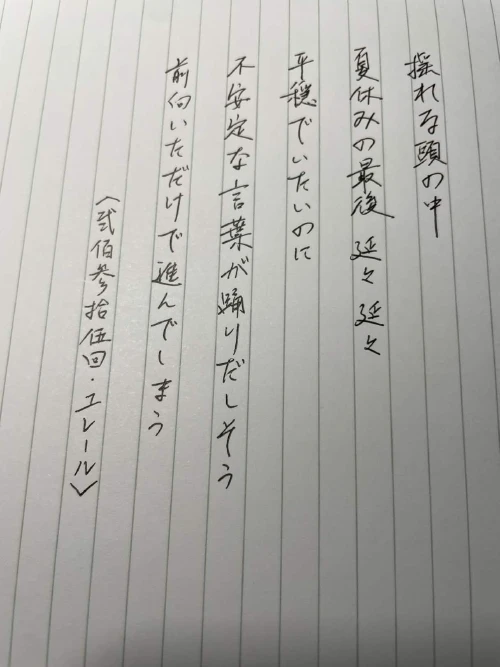 揺れる頭の中
夏休みの最後 延々 延々
平穏でいたいのに
不安定な言葉が踊りだしそう
前向いただけで進んでしまう
〈弐佰参拾伍回・ユレール〉